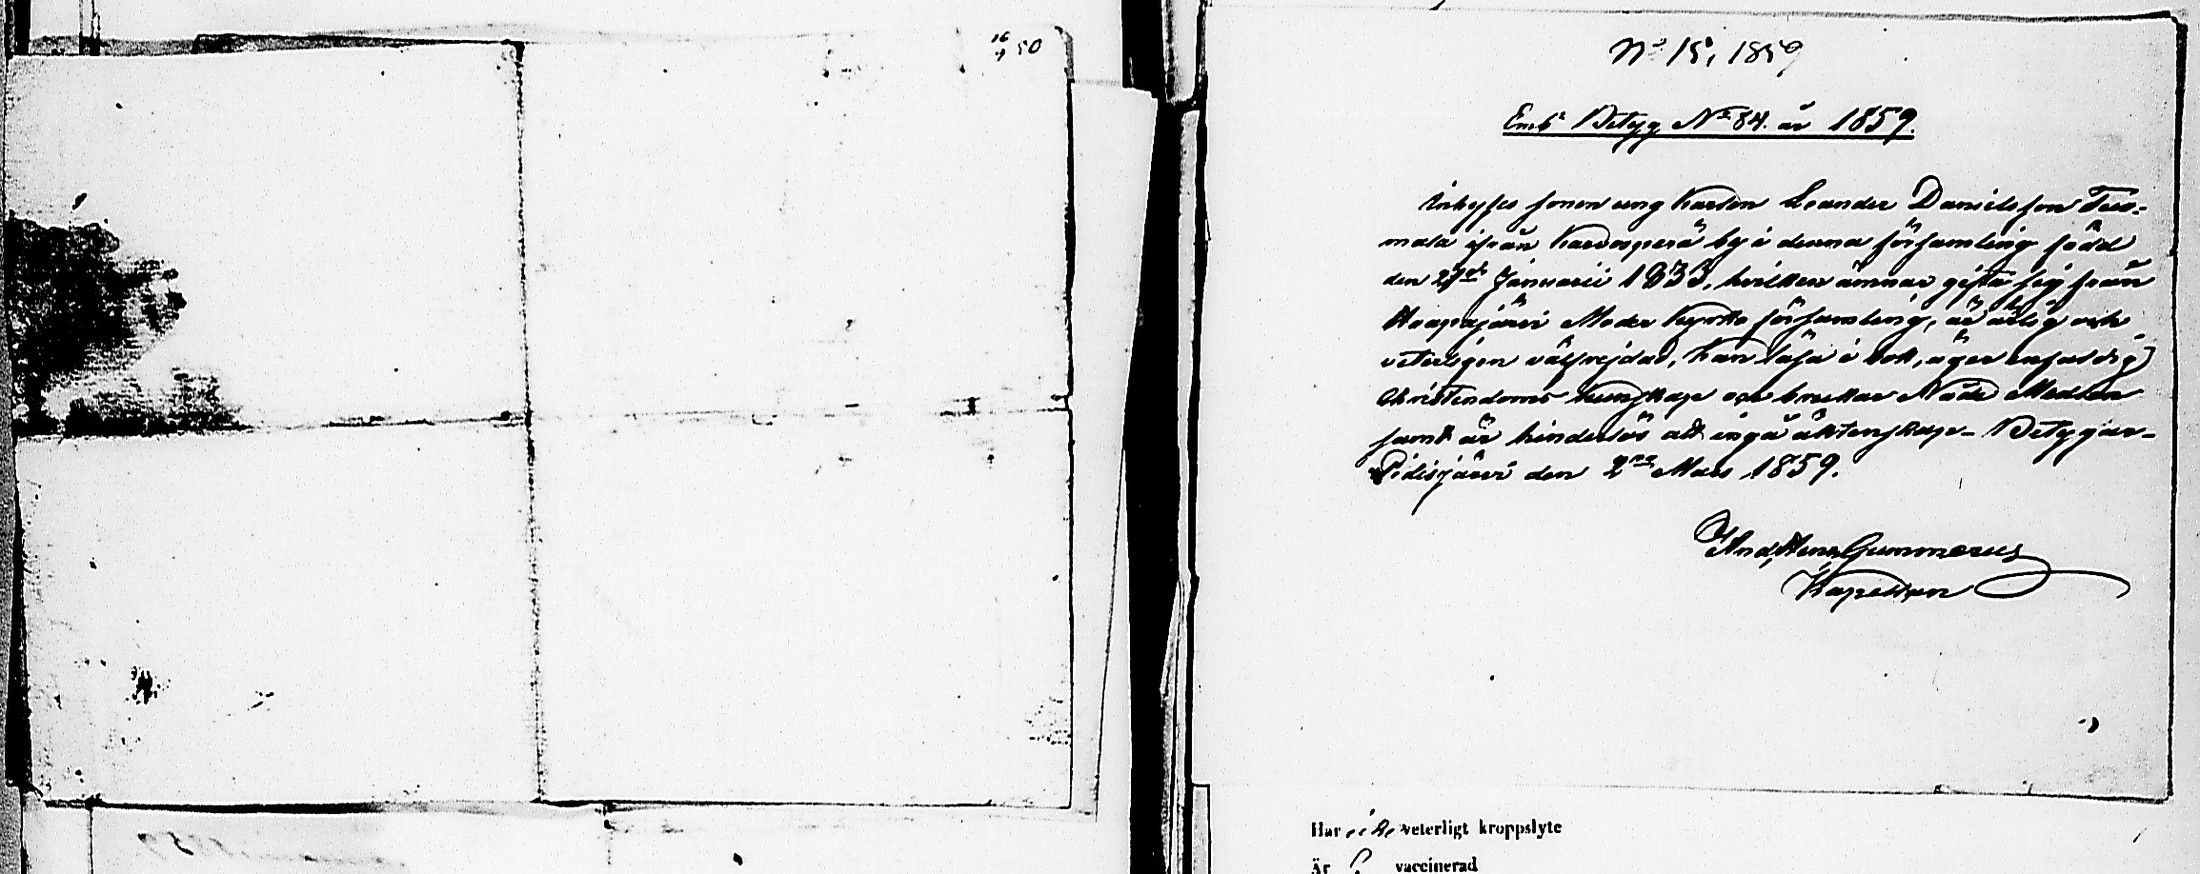 50
No 15, 1859
Embs Betyg No 84. år 1859.
Inhyses sonen ung karlen Leander Danielsson Tuo-
mala ifrån Karvosperä by i denna församling född
den 27de Januarii 1833, hvilken ämnar gifta sig från
Haapajärvi Moder Kyrko församling, är ärlig och
veterligen välfrejdad, kan läsa i bok, äger enfaldig
Christendoms kunskap och brukar Nåde Medlen
samt är hinderlös att ingå äktenskap – Betygar –
Pidisjärvi den 2dra Mars 1859.
And. Henr. Gummerus
Kapellan
Har icke veterligt kroppslyte
Är vaccinerad